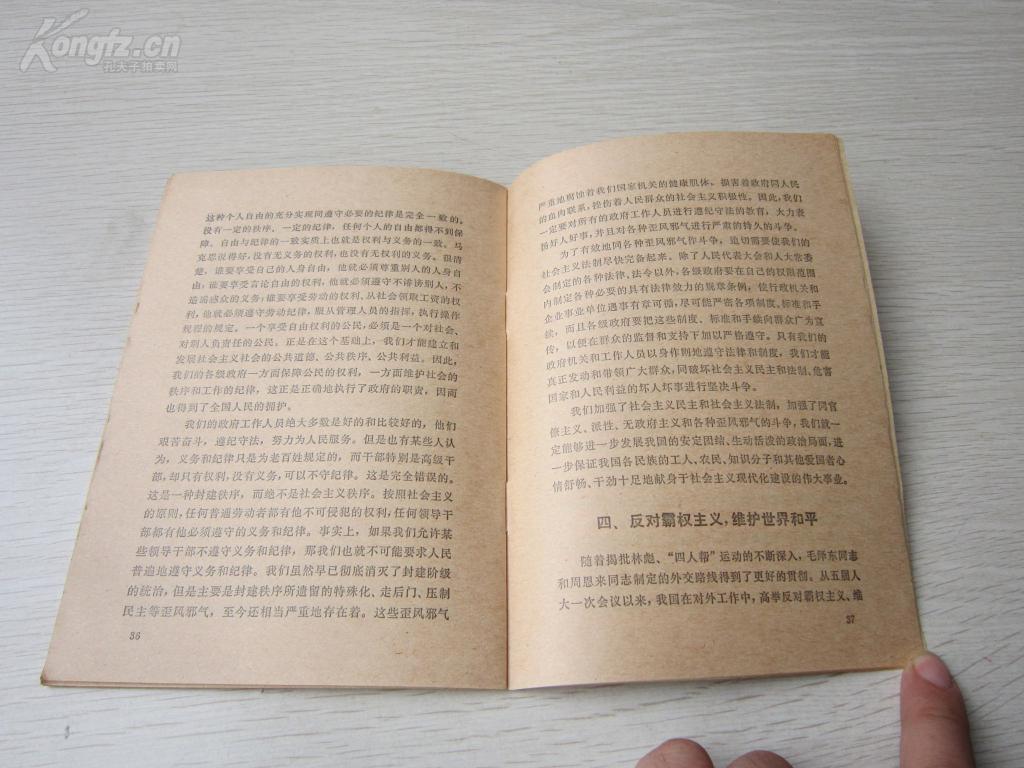 Kongfz.cn
孔夫子拍卖网
这种个人自由的充分实现同遵守必要的纪律是完全一致的。
没有一定的秩序、一定的纪律，任何个人的自由都得不到保
障。自由与纪律的一致实质上也就是权利与义务的一致。马
克思说得好，没有无义务的权利，也没有无权利的义务。很清
楚，谁要享受自己的人身自由，他就必须尊重别人的人身自
由；谁要享受言论自由的权利，他就必须遵守不诽谤别人，不
造谣惑众的义务；谁要享受劳动的权利、从社会领取工资的权
利，他就必须遵守劳动纪律，服从管理人员的指挥，执行操作
规程的规定。一个享受自由权利的公民，必须是一个对社会、
对别人负责任的公民。正是在这个基础上，我们才能建立和
发展社会主义社会的公共道德、公共秩序、公共利益。因此，
我们的各级政府一方面保障公民的权利，一方面维护社会的
秩序和工作的纪律，这正是正确地执行了政府的职责，因而
也得到了全国人民的拥护。
我们的政府工作人员绝大多数是好的和比较好的，他们
艰苦奋斗，遵纪守法，努力为人民服务。但是也有某些人认
为，义务和纪律只是为老百姓规定的，而干部特别是高级干
部，却只有权利，没有义务，可以不守纪律。这是完全错误的。
这是一种封建秩序，而绝不是社会主义秩序。按照社会主义
的原则，任何普通劳动者都有他不可侵犯的权利，任何领导干
部都有他必须遵守的义务和纪律。事实上，如果我们允许某
些领导干部不遵守义务和纪律，那我们也就不可能要求人民
普遍地遵守义务和纪律。我们虽然早已彻底消灭了封建阶级
的统治，但是主要是封建秩序所遗留的特殊化、走后门、压制
民主等歪风邪气，至今还相当严重地存在着。这些歪风邪气
36
严重地腐蚀着我们国家机关的健康肌体，损害着政府同人民
的鱼肉联系，挫伤着人民群众的社会主义积极性。因此，我们
一定要对所有的政府工作人员进行遵纪守法的教育，大力表
扬好人好事，并且对各种歪风邪气进行严肃的持久的斗争。
为了有效地同各种歪风邪气作斗争，迫切需要使我们的
社会主义法制尽快完备起来。除了人民代表大会和人大常委
会制定的各种法律、法令以外，各级政府要在自己的权限范围
内制定各种必要的具有法律效力的规章条例，使行政机关和
企业事业单位遇事有章可循，尽可能严密各项制度、标准和手
续，而且各级政府要把这些制度、标准和手续向群众广为宣
传，以便在群众的监督和支持下加以严格遵守。只有我们的
政府机关和工作人员以身作则地遵守法律和制度，我们才能
真正发动和带领广大群众，同破坏社会主义民主和法制、危害
国家和人民利益的坏人坏事进行坚决斗争。
我们加强了社会主义民主和社会主义法制，加强了同官
僚主义、派性、无政府主义和各种歪风邪气的斗争，我们就一
定能够进一步发展我国的安定团结、生动活泼的政治局面，进
一步保证我国各民族的工人、农民、知识分子和其他爱国者心
情舒畅、干劲十足地献身于社会主义现代化建设的伟大事业。
四、反对霸权主义，维护世界和平
随着揭批林彪、“四人帮”运动的不断深入，毛泽东同志
和周恩来同志制定的外交路线得到了更好的贯彻。从五届人
大一次会议以来，我国在对外工作中，高举反对霸权主义、维
37